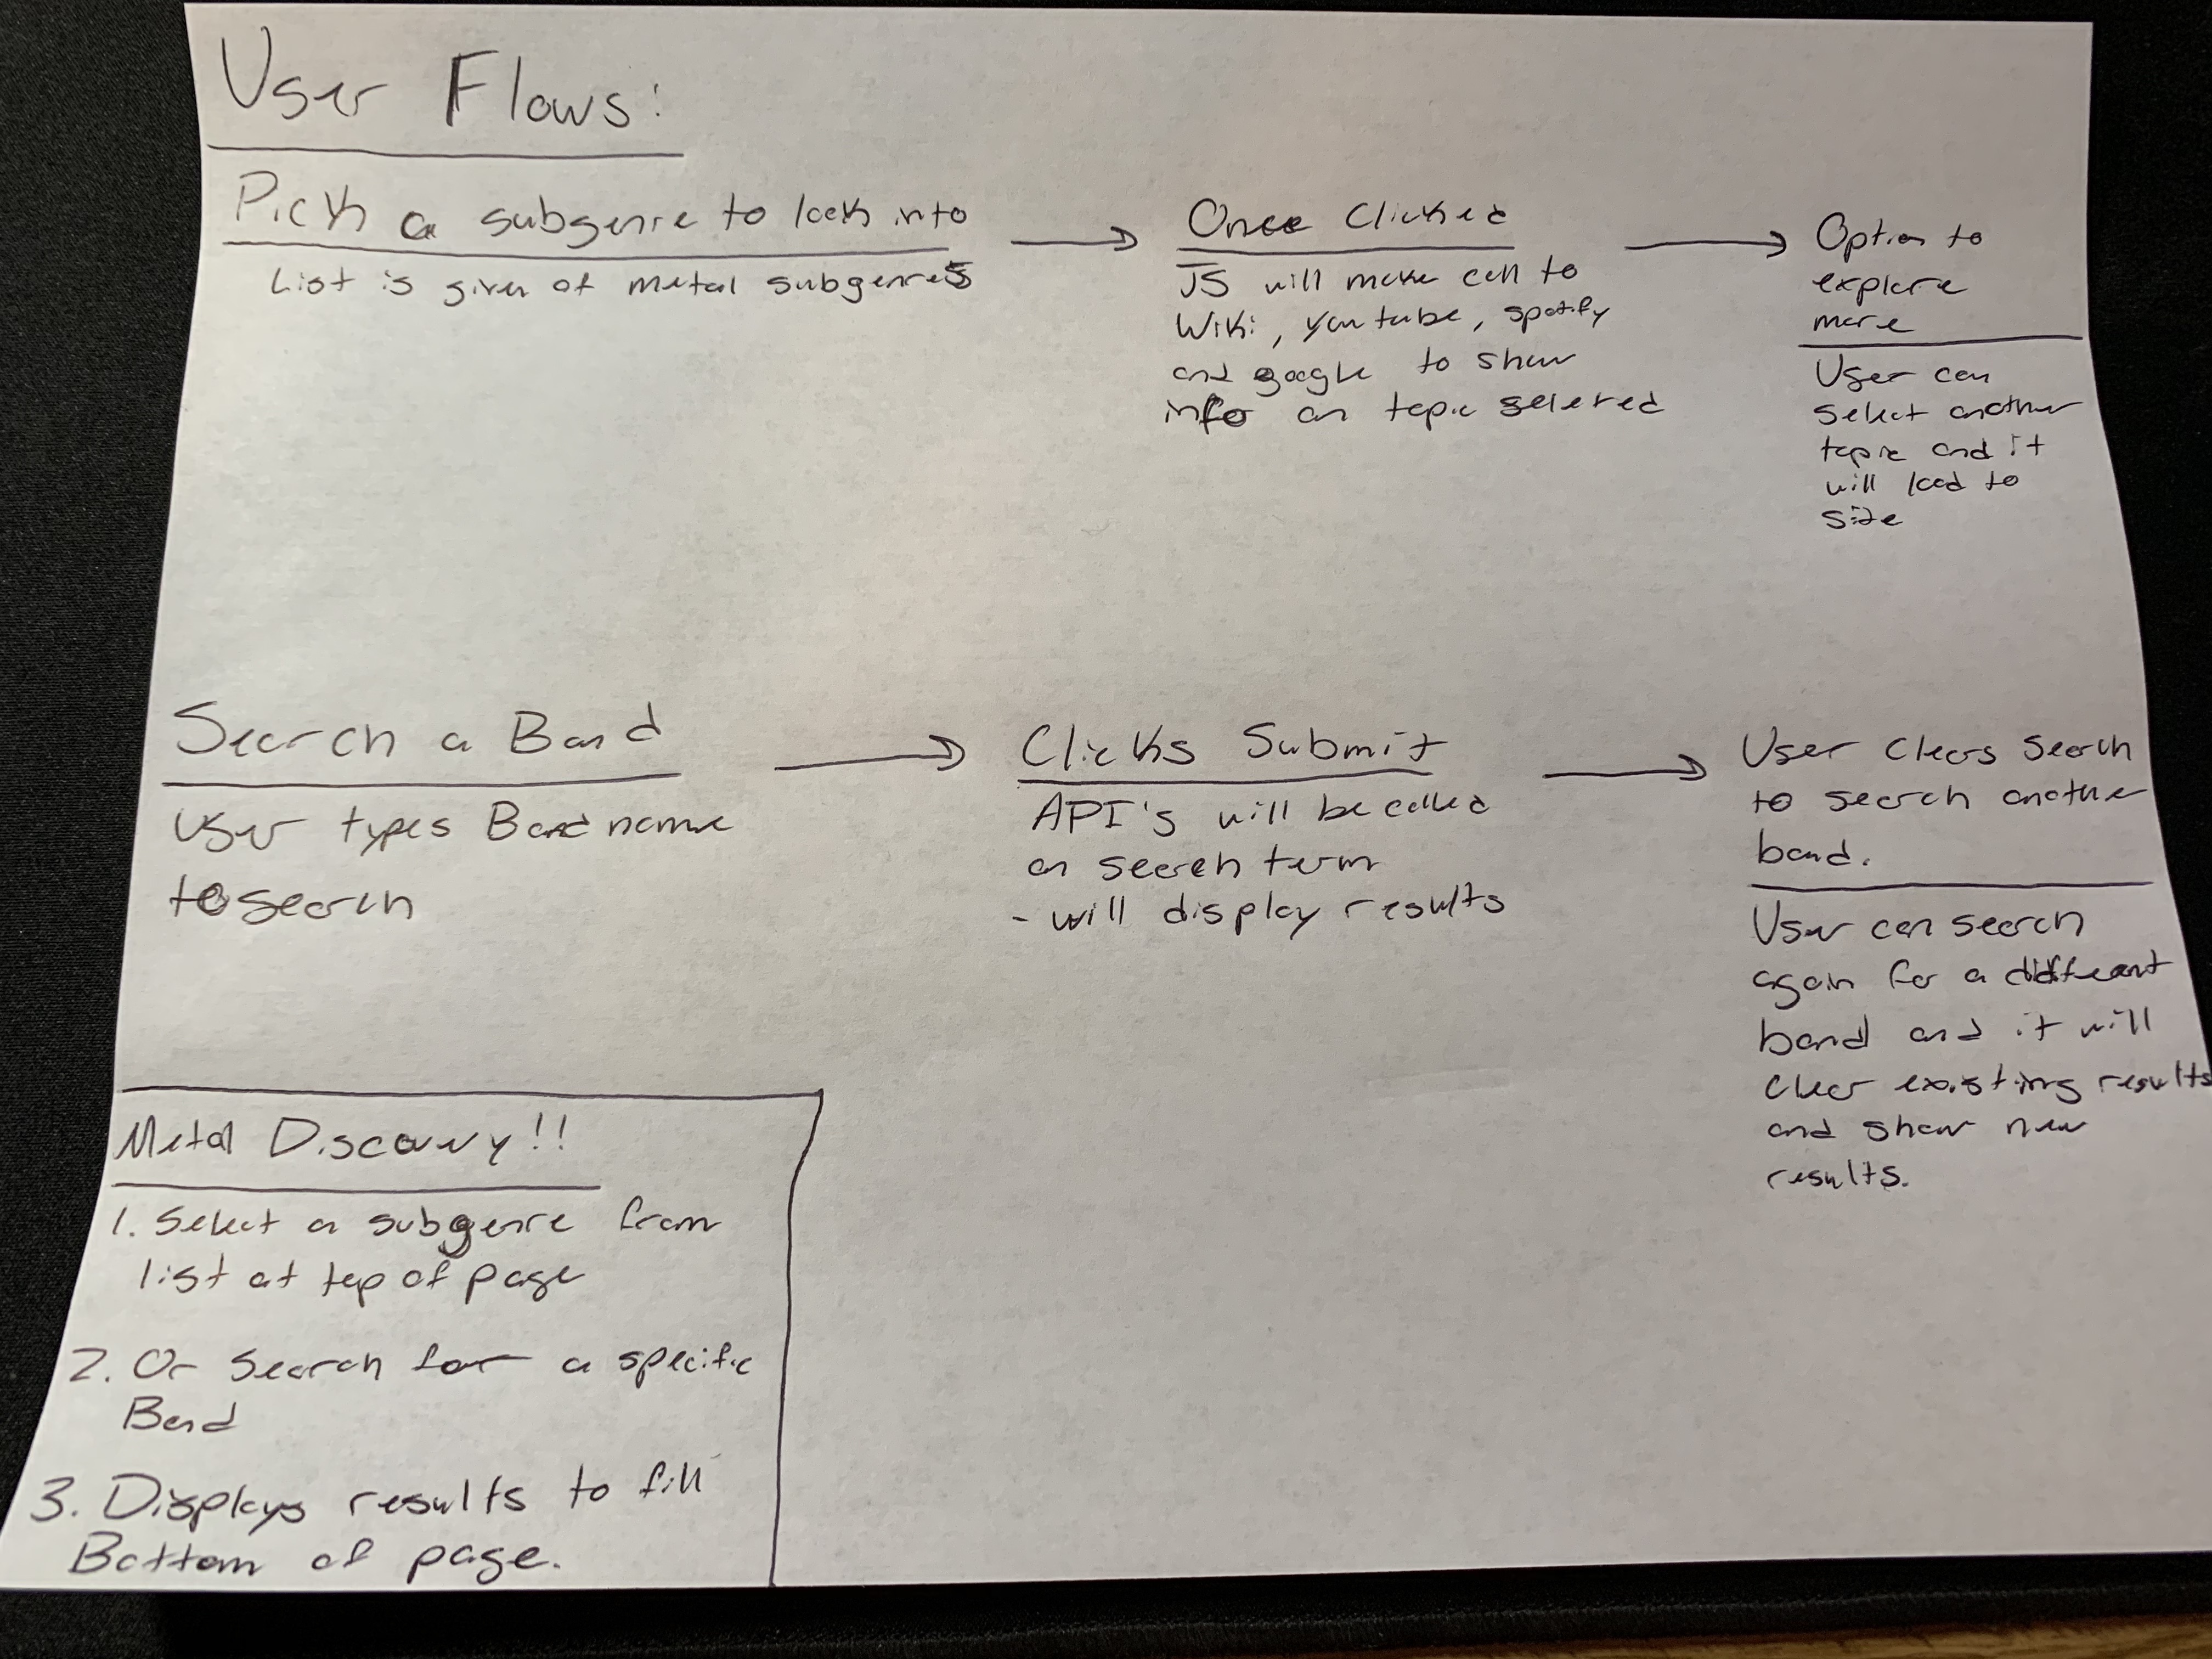 User Flows:
Pick a subgenre to look into
List is given of metal subgenres
Once Clicked
JS will make call to
Wiki, youtube, spotify
and google to show
info on topic selered
Option to
explore
more
User can
select another
topic and it
will load to
site
Search a Band
User types Band name
to search
Clicks Submit
API's will be called
on search term
- will display results
User clears search
to search another
band.
User can search
again for a different
band and it will
clear existing results
and show new
results.
Metal Discovery!!
1. Select a subgenre from
list at top of page
2. Or Search for a specific
Band
3. Displays results to fill
Bottom of page.